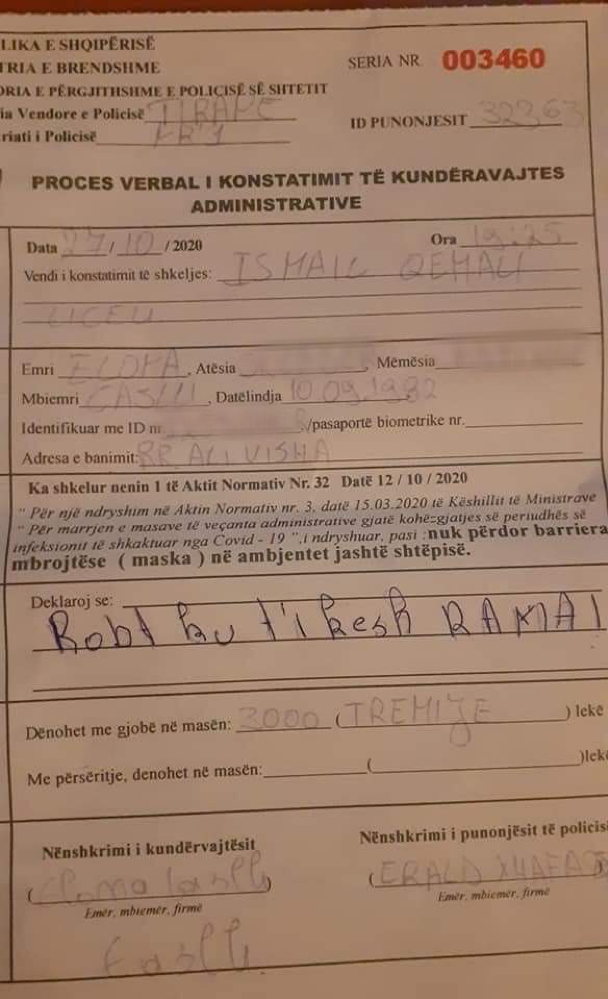 LIKA E SHQIPËRISË
TRIA E BRENDSHME
SERIA NR. 003460
ORIA E PËRGJITHSHME E POLICISË SË SHTETIT
ia Vendore e Policisë TIRANE
ID PUNONJESIT 32363
riati i Policisë
PROCES VERBAL I KONSTATIMIT TË KUNDËRAVAJTES
ADMINISTRATIVE
Data 27/10/2020 Ora 19:25
Vendi i konstatimit të shkeljes: ISMAIL QEMALI
LICEU
Emri, Atësia, Mëmësia
Mbiemri, Datëlindja 10.09.1982
Identifikuar me ID nr. /pasaportë biometrike nr.
Adresa e banimit: RR ALI VISHA
Ka shkelur nenin 1 të Aktit Normativ Nr. 32 Datë 12 / 10 / 2020
" Për një ndryshim në Aktin Normativ nr. 3, datë 15.03.2020 të Këshillit të Ministrave
" Për marrjen e masave të veçanta administrative gjatë kohëzgjatjes së periudhës së
infeksionit të shkaktuar nga Covid - 19 ",i ndryshuar, pasi :nuk përdor barriera
mbrojtëse ( maska ) në ambjentet jashtë shtëpisë.
Deklaroj se:
Robt ku t'i kesh RAMA!
Dënohet me gjobë në masën: 3000 (TREMIJE) lekë
Me përsëritje, denohet në masën: ( )lekë
Nënshkrimi i kundërvajtësit
Nënshkrimi i punonjësit të policisë
(ERALD)
Emër, mbiemër, firmë
Emër, mbiemër, firmë